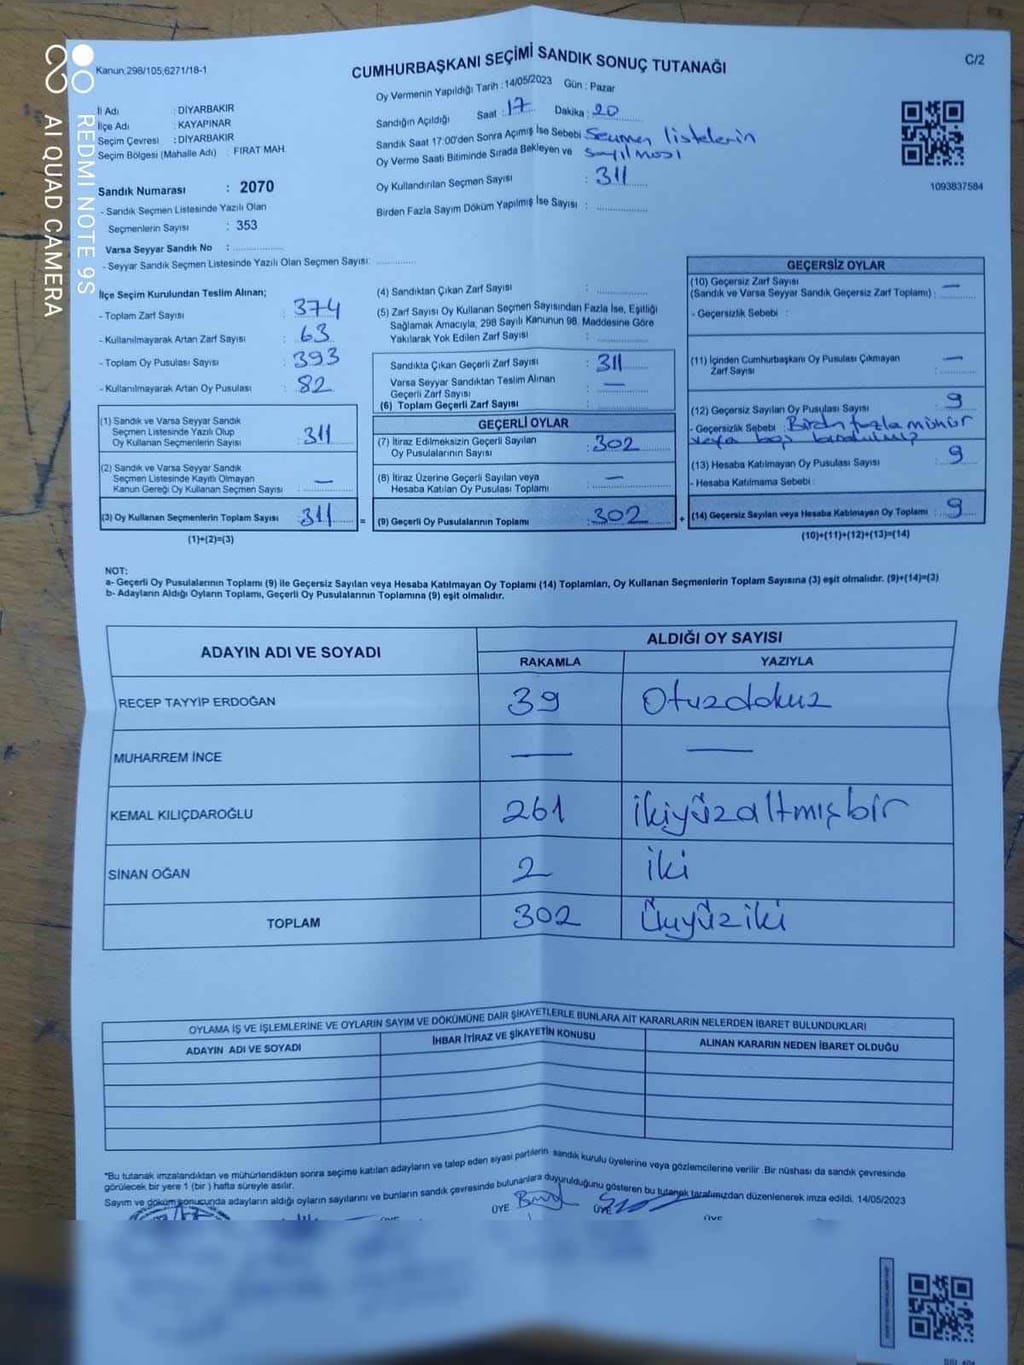 REDMI NOTE 9S
AI QUAD CAMERA
Kanun:298/105,6271/18-1
CUMHURBAŞKANI SEÇİMİ SANDIK SONUÇ TUTANAĞI
C/2
İl Adı : DİYARBAKIR
İlçe Adı : KAYAPINAR
Seçim Çevresi : DİYARBAKIR
Seçim Bölgesi (Mahalle Adı) : FIRAT MAH.
Sandık Numarası : 2070
- Sandık Seçmen Listesinde Yazılı Olan
Seçmenlerin Sayısı : 353
Varsa Seyyar Sandık No :
- Seyyar Sandık Seçmen Listesinde Yazılı Olan Seçmen Sayısı:
Oy Vermenin Yapıldığı Tarih : 14/05/2023 Gün : Pazar
Sandığın Açıldığı Saat : 17 Dakika : 20
Sandık Saat 17:00'den Sonra Açımış İse Sebebi Seçmen listelerin
Oy Verme Saati Bitiminde Sırada Bekleyen ve sayılması
Oy Kullandırılan Seçmen Sayısı : 311
Birden Fazla Sayım Döküm Yapılmış İse Sayısı :
1093837584
İlçe Seçim Kurulundan Teslim Alınan;
- Toplam Zarf Sayısı : 374
- Kullanılmayarak Artan Zarf Sayısı : 63
- Toplam Oy Pusulası Sayısı : 393
- Kullanılmayarak Artan Oy Pusulası : 82
(1) Sandık ve Varsa Seyyar Sandık
Seçmen Listesinde Yazılı Olup
Oy Kullanan Seçmenlerin Sayısı : 311
(2) Sandık ve Varsa Seyyar Sandık
Seçmen Listesinde Kayıtlı Olmayan
Kanun Gereği Oy Kullanan Seçmen Sayısı : —
(3) Oy Kullanan Seçmenlerin Toplam Sayısı : 311
(1)+(2)=(3)
(4) Sandıktan Çıkan Zarf Sayısı :
(5) Zarf Sayısı Oy Kullanan Seçmen Sayısından Fazla İse, Eşitliği
Sağlamak Amacıyla, 298 Sayılı Kanunun 98. Maddesine Göre
Yakılarak Yok Edilen Zarf Sayısı :
Sandıkta Çıkan Geçerli Zarf Sayısı : 311
Varsa Seyyar Sandıktan Teslim Alınan
Geçerli Zarf Sayısı : —
(6) Toplam Geçerli Zarf Sayısı :
GEÇERLİ OYLAR
(7) İtiraz Edilmeksizin Geçerli Sayılan
Oy Pusulalarının Sayısı : 302
(8) İtiraz Üzerine Geçerli Sayılan veya
Hesaba Katılan Oy Pusulası Toplamı : —
= (9) Geçerli Oy Pusulalarının Toplamı : 302
GEÇERSİZ OYLAR
(10) Geçersiz Zarf Sayısı
(Sandık ve Varsa Seyyar Sandık Geçersiz Zarf Toplamı) : —
- Geçersizlik Sebebi :
(11) İçinden Cumhurbaşkanı Oy Pusulası Çıkmayan
Zarf Sayısı : —
(12) Geçersiz Sayılan Oy Pusulası Sayısı : 9
- Geçersizlik Sebebi : Birden fazla mühür
veya boş
(13) Hesaba Katılmayan Oy Pusulası Sayısı : 9
- Hesaba Katılmama Sebebi :
+ (14) Geçersiz Sayılan veya Hesaba Katılmayan Oy Toplamı : 9
(10)+(11)+(12)+(13)=(14)
NOT:
a- Geçerli Oy Pusulalarının Toplamı (9) ile Geçersiz Sayılan veya Hesaba Katılmayan Oy Toplamı (14) Toplamları, Oy Kullanan Seçmenlerin Toplam Sayısına (3) eşit olmalıdır. (9)+(14)=(3)
b- Adayların Aldığı Oyların Toplamı, Geçerli Oy Pusulalarının Toplamına (9) eşit olmalıdır.
ADAYIN ADI VE SOYADI
ALDIĞI OY SAYISI
RAKAMLA YAZIYLA
RECEP TAYYİP ERDOĞAN 39 Otuzdokuz
MUHARREM İNCE — —
KEMAL KILIÇDAROĞLU 261 ikiyüzaltmışbir
SİNAN OĞAN 2 iki
TOPLAM 302 Üçyüziki
OYLAMA İŞ VE İŞLEMLERİNE VE OYLARIN SAYIM VE DÖKÜMÜNE DAİR ŞİKAYETLERLE BUNLARA AİT KARARLARIN NELERDEN İBARET BULUNDUKLARI
ADAYIN ADI VE SOYADI İHBAR İTİRAZ VE ŞİKAYETİN KONUSU ALINAN KARARIN NEDEN İBARET OLDUĞU
*Bu tutanak imzalandıktan ve mühürlendikten sonra seçime katılan adayların ve talep eden siyasi partilerin sandık kurulu üyelerine veya gözlemcilerine verilir. Bir nüshası da sandık çevresinde
görülecek bir yere 1 (bir ) hafta süreyle asılır.
Sayım ve döküm sonucunda adayların aldığı oyların sayılarını ve bunların sandık çevresinde bulunanlara duyurulduğunu gösteren bu tutanak tarafımızdan düzenlenerek imza edildi. 14/05/2023
ÜYE ÜYE ÜYE